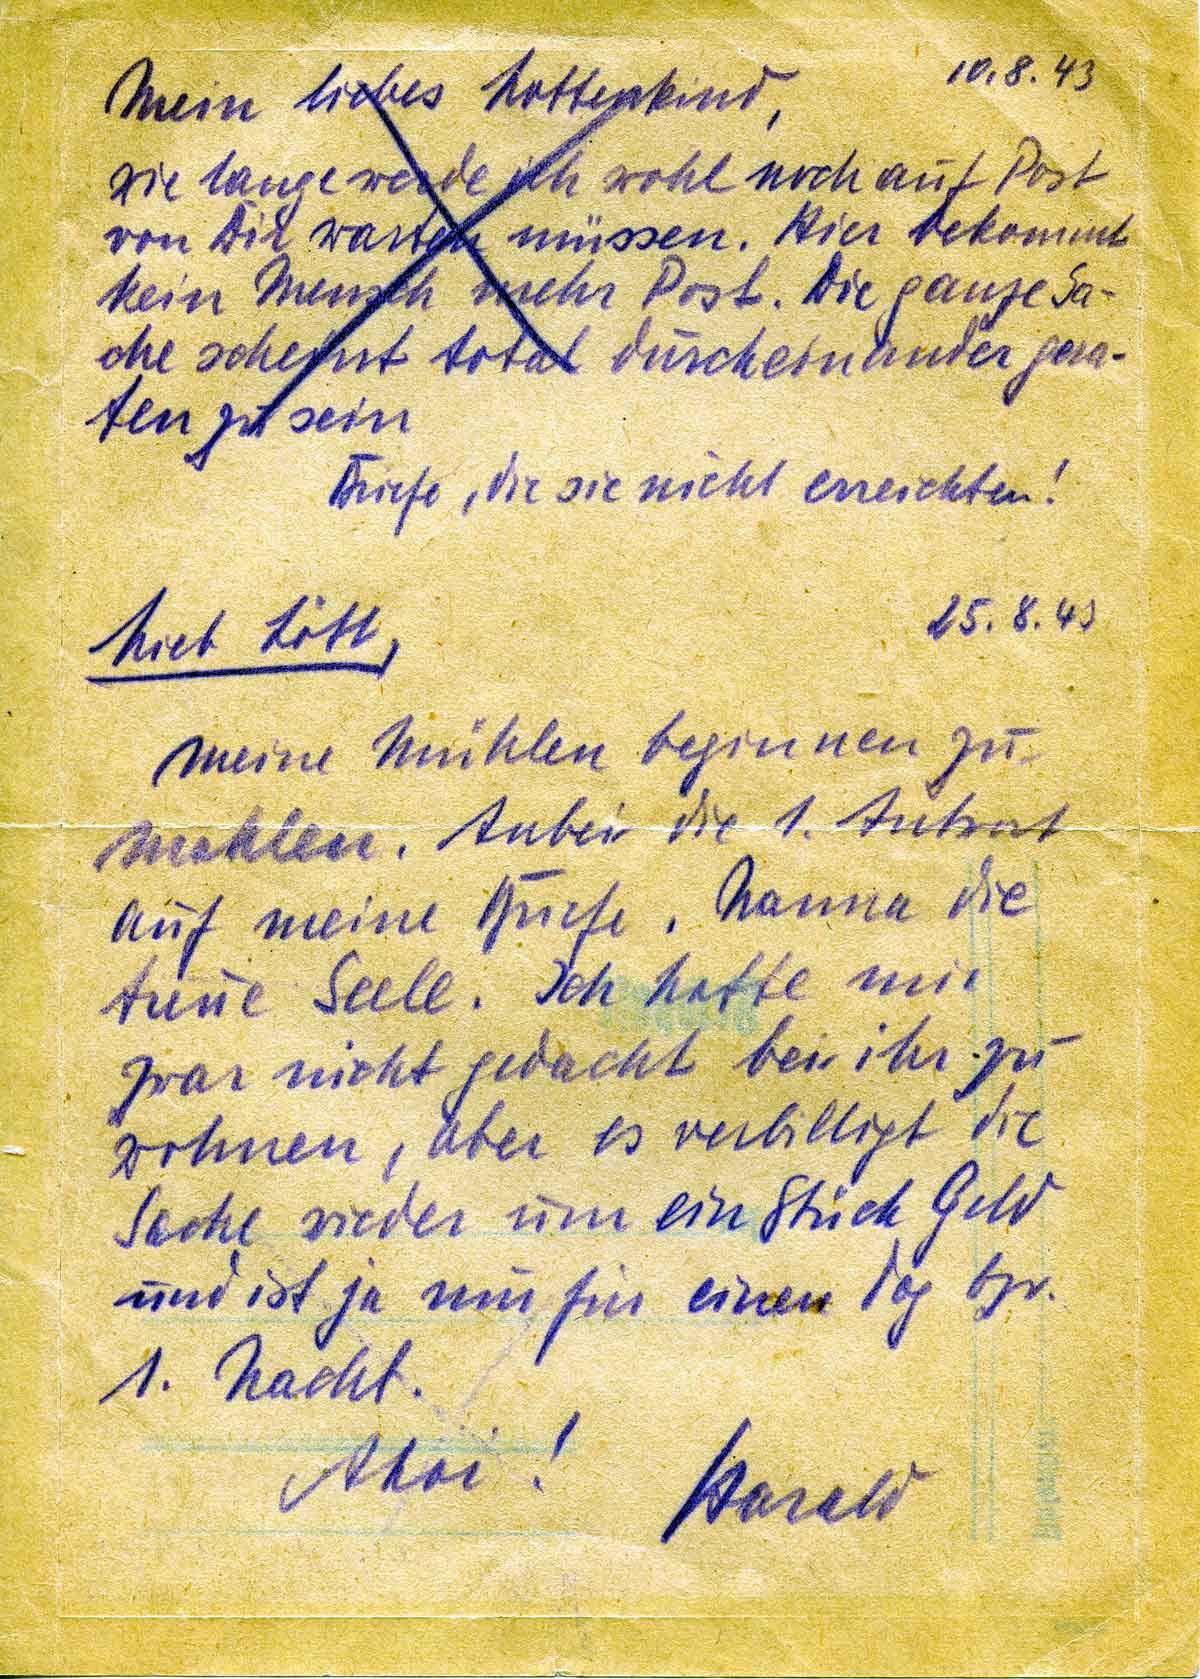 10.8.43
Mein liebes Lottenkind,
wie lange werde ich wohl noch auf Post
von Dir warten müssen. Hier bekommt
kein Mensch mehr Post. Die ganze Sa-
che scheint total durcheinander gera-
ten zu sein
Briefe, die sie nicht erreichten!
25.8.43
Lieb Lött,
Meine Mühlen beginnen zu
mahlen. Anbei die 1. Antwort
auf meine Briefe. Nanna die
treue Seele. Ich hatte mir
zwar nicht gedacht bei ihr zu
wohnen, aber es verbilligt die
Sache wieder um ein Stück Geld
und ist ja nur für einen Tag bzw.
1. Nacht.
Ahoi! Harald